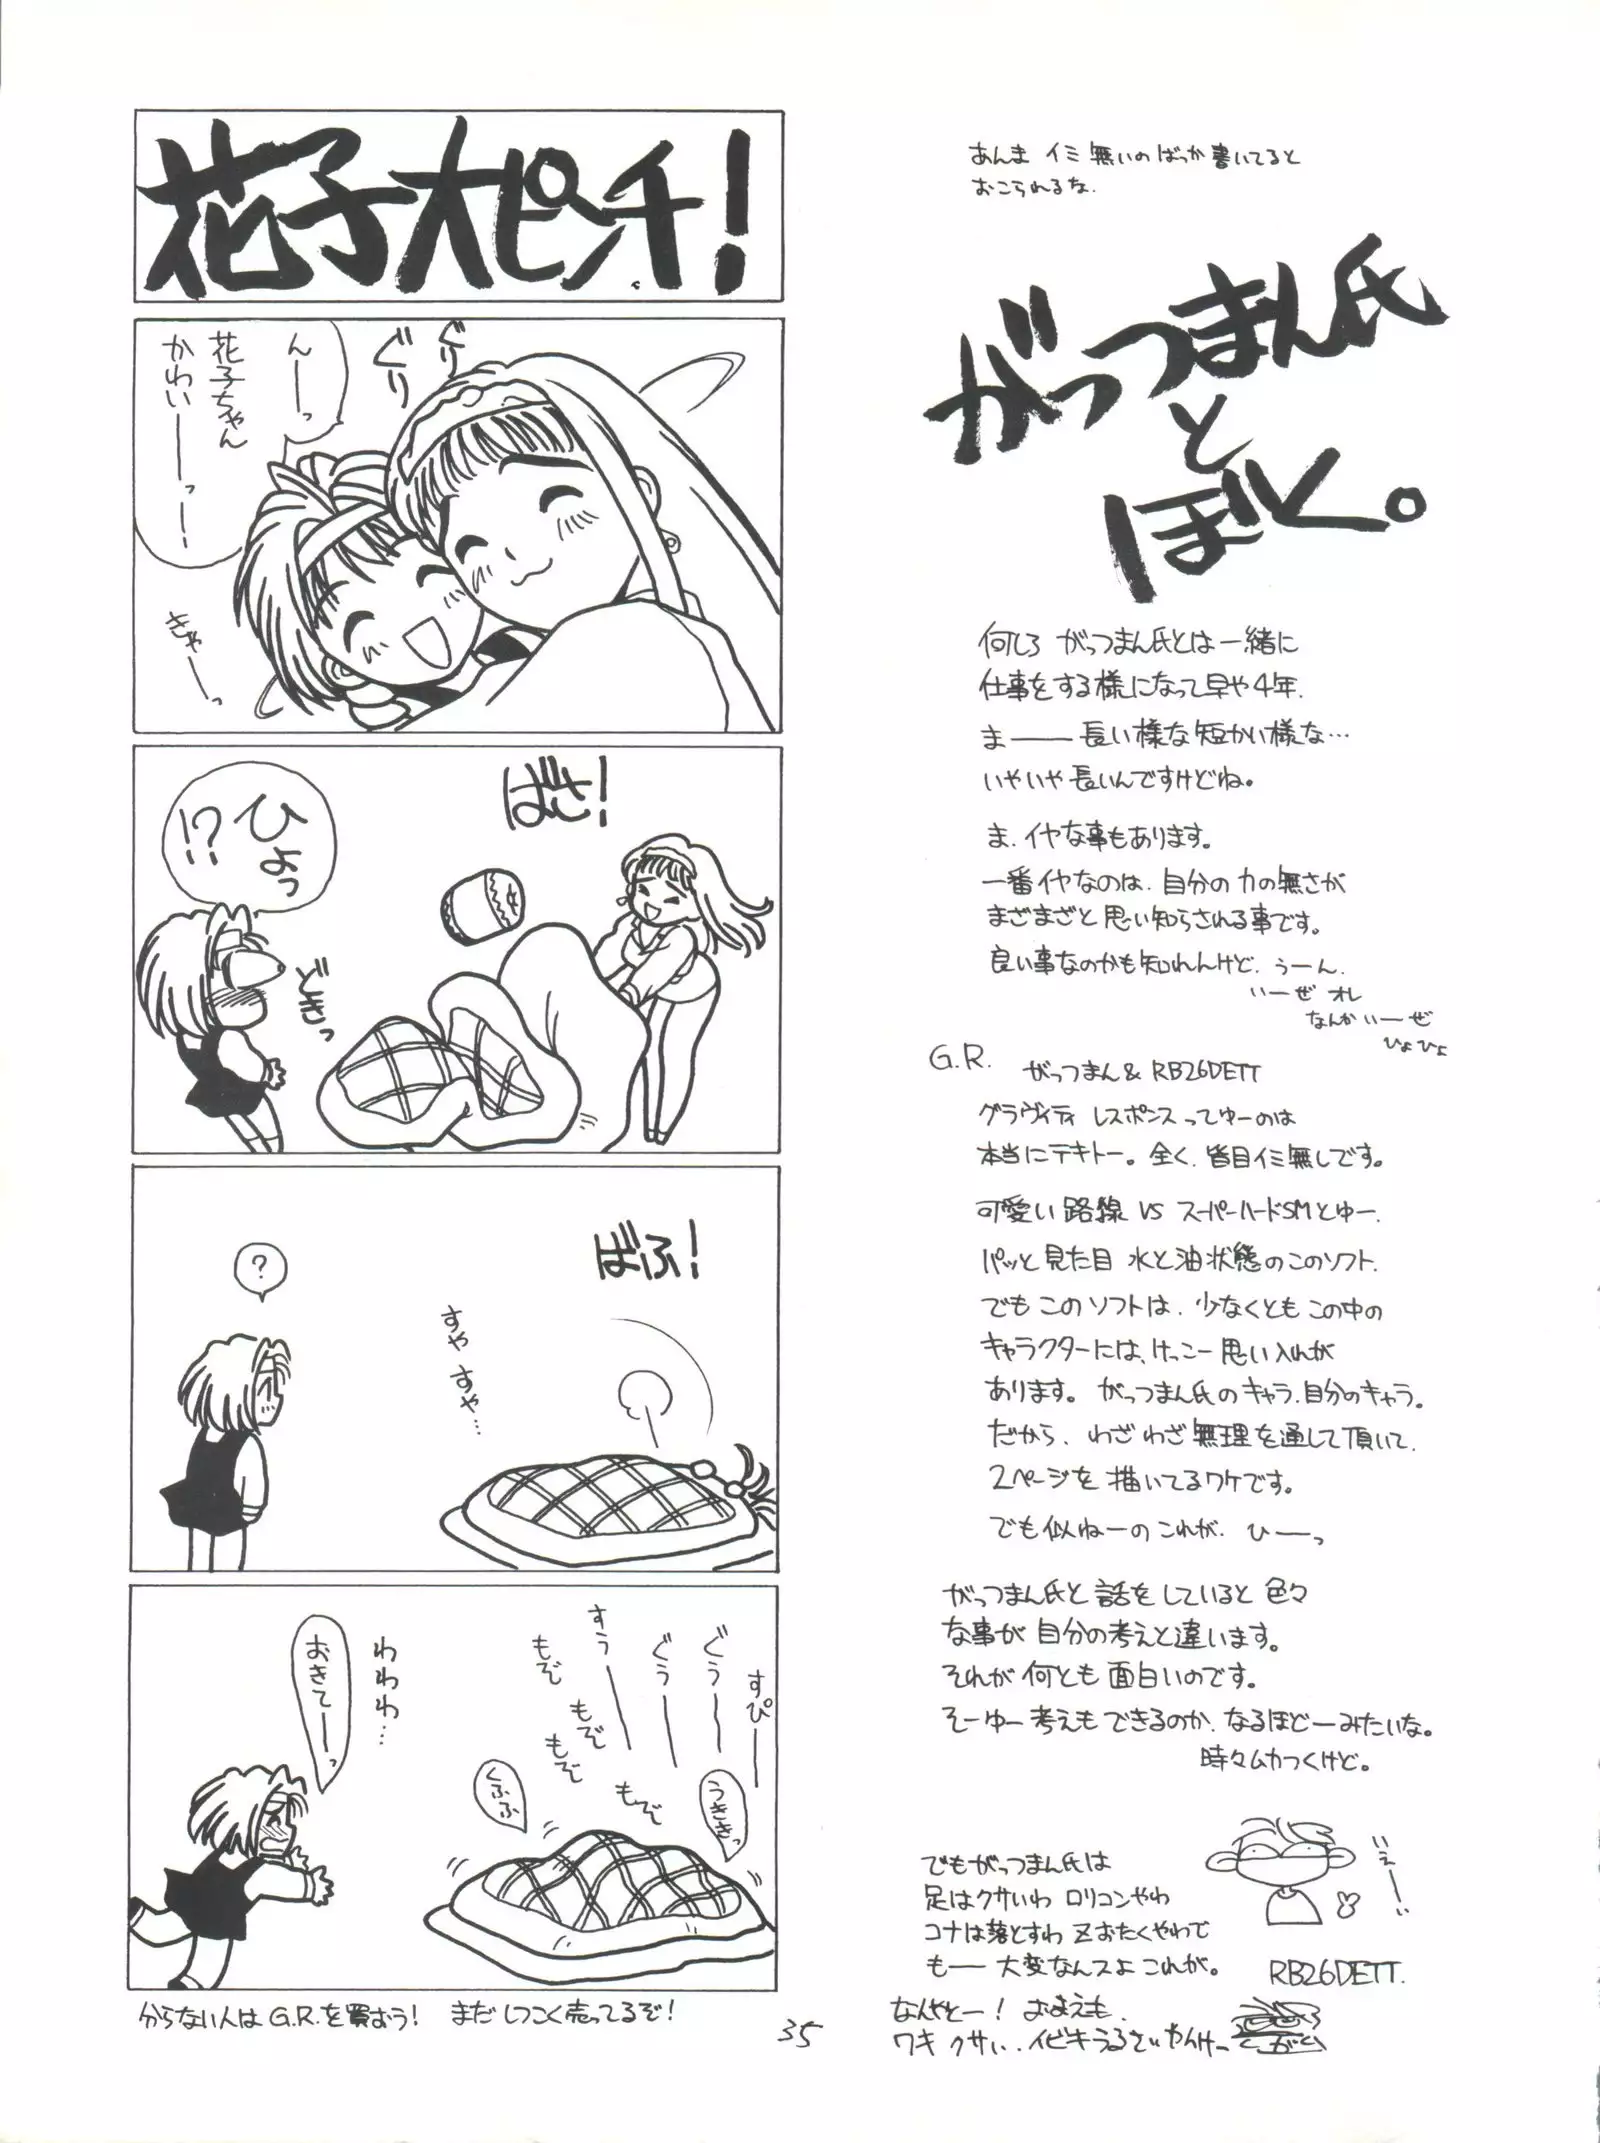 花子大ピンチ!
ぐりぐり
んーっ
花子ちゃん
かわいーっー
きゃーっ
ばさ!
ひょっ
!?
どきっ
ばふ!
?
すや すや…
すぴー
ぐぅー
ぐぅー
すぅー
もぞ
もぞもぞ
もぞ
うききっ
くふふ
わわわ…
おきてーっ
分らない人はG.R.を買おう! まだしつこく売ってるぞ!
35
あんま イミ無いのばっか書いてると
おこられるな.
がっつまん氏
と
ぼく。
何しろ がっつまん氏とは一緒に
仕事をする様になって早や4年.
ま――長い様な短かい様な…
いやいや長いんですけどね。
ま.イヤな事もあります。
一番イヤなのは.自分の力の無さが
まざまざと思い知らされる事です。
良い事なのかも知れんけど.うーん.
いーぜ オレ
なんか いーぜ
ひょひょ
G.R. がっつまん& RB26DETT
グラヴィティ レスポンスってゆーのは
本当にテキトー。全く.皆目イミ無しです。
可愛い路線 VS スーパーハードSMとゆー.
パッと見た目 水と油状態のこのソフト.
でもこのソフトは.少なくともこの中の
キャラクターには、けっこー思い入れが
あります。がっつまん氏のキャラ.自分のキャラ。
だから.わざわざ無理を通して頂いて.
2ページを描いてるワケです。
でも似ねーのこれが. ひーっ
がっつまん氏と話をしていると色々
な事が自分の考えと違います。
それが何とも面白いのです。
そーゆー考えもできるのか.なるほどーみたいな。
時々ムカつくけど。
でもがっつまん氏は
足はクサいわ ロリコンやわ
コナは落とすわ Zおたくやわで
もー 大変なんスよこれが。
いぇーい
RB26DETT.
なんやとー! おまえも.
ワキ クサい.イビキうるさいやんけー